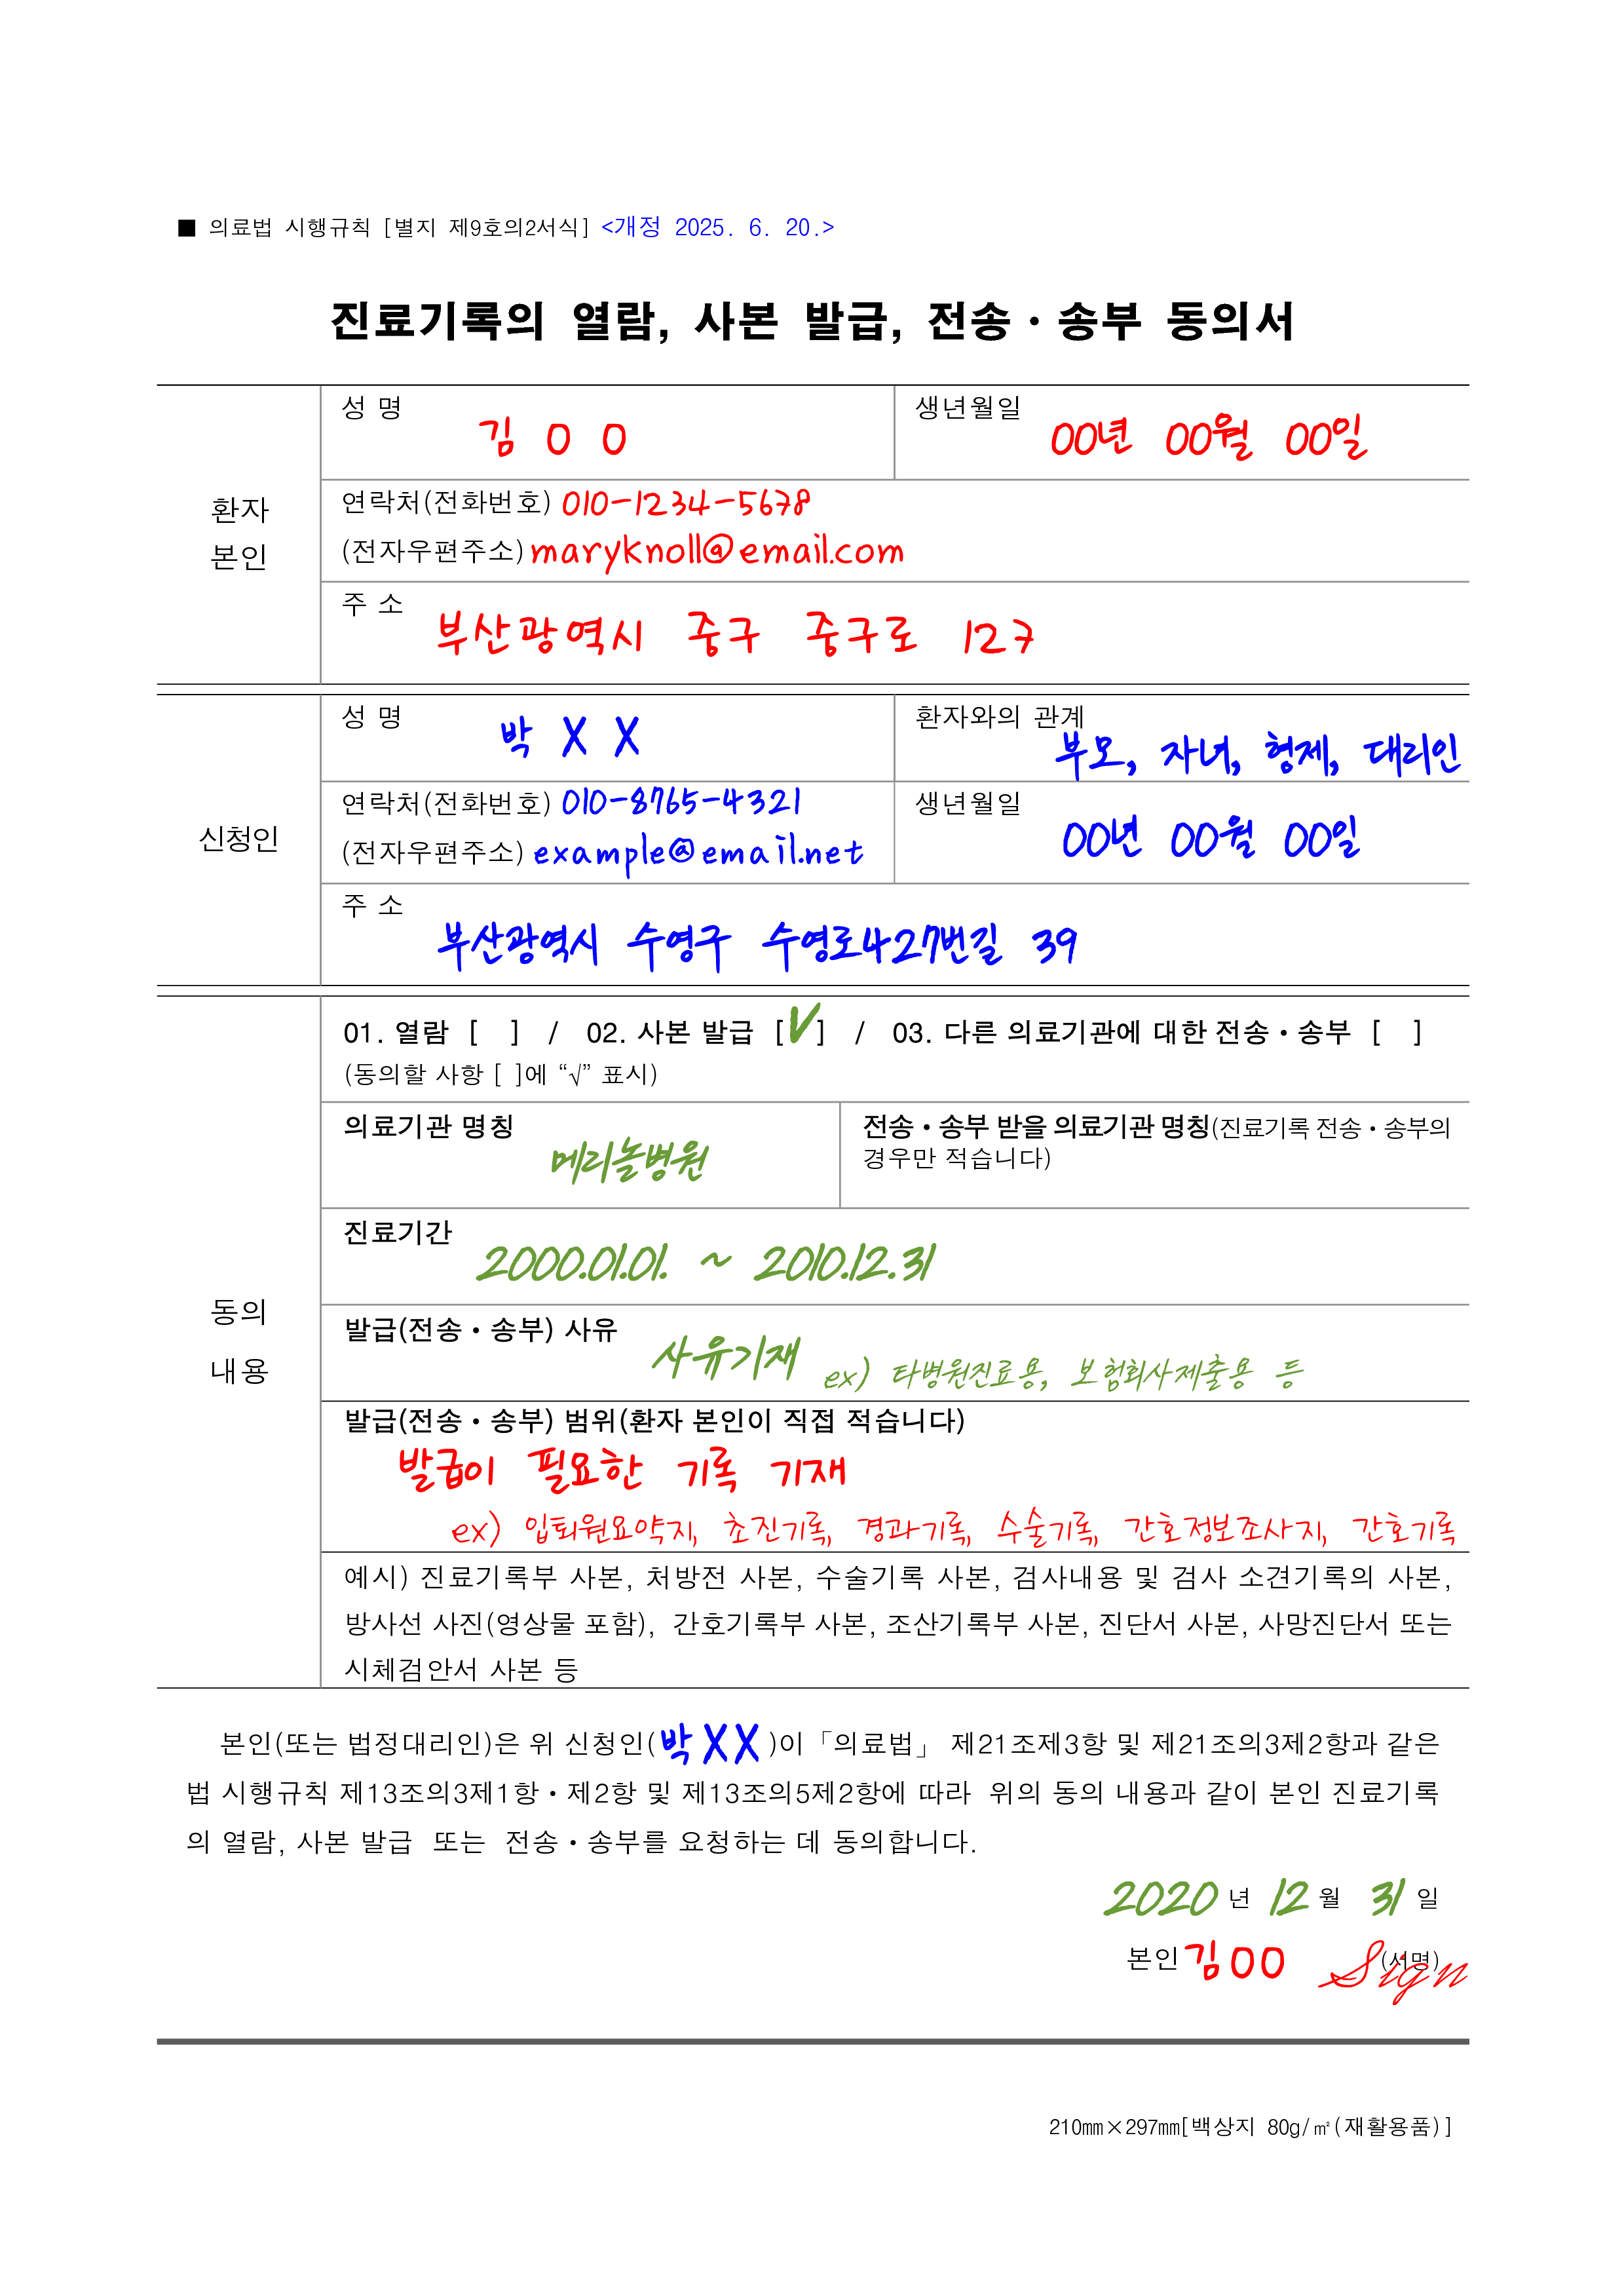 ■ 의료법 시행규칙 [별지 제9호의2서식] <개정 2025. 6. 20.>
진료기록의 열람, 사본 발급, 전송·송부 동의서
환자
본인
성 명 김 O O
생년월일 00년 00월 00일
연락처(전화번호) 010-1234-5678
(전자우편주소) maryknoll@email.com
주 소 부산광역시 중구 중구로 127
신청인
성 명 박 X X
환자와의 관계 부모, 자녀, 형제, 대리인
연락처(전화번호) 010-8765-4321
(전자우편주소) example@email.net
생년월일 00년 00월 00일
주 소 부산광역시 수영구 수영로427번길 39
동의
내용
01. 열람 [ ] / 02. 사본 발급 [V] / 03. 다른 의료기관에 대한 전송·송부 [ ]
(동의할 사항 [ ]에 “√” 표시)
의료기관 명칭 메리놀병원
전송·송부 받을 의료기관 명칭(진료기록 전송·송부의
경우만 적습니다)
진료기간 2000.01.01. ~ 2010.12.31
발급(전송·송부) 사유 사유기재 ex) 타병원진료용, 보험회사제출용 등
발급(전송·송부) 범위(환자 본인이 직접 적습니다)
발급이 필요한 기록 기재
ex) 입퇴원요약지, 초진기록, 경과기록, 수술기록, 간호정보조사지, 간호기록
예시) 진료기록부 사본, 처방전 사본, 수술기록 사본, 검사내용 및 검사 소견기록의 사본,
방사선 사진(영상물 포함), 간호기록부 사본, 조산기록부 사본, 진단서 사본, 사망진단서 또는
시체검안서 사본 등
본인(또는 법정대리인)은 위 신청인(박XX)이「의료법」 제21조제3항 및 제21조의3제2항과 같은
법 시행규칙 제13조의3제1항·제2항 및 제13조의5제2항에 따라 위의 동의 내용과 같이 본인 진료기록
의 열람, 사본 발급 또는 전송·송부를 요청하는 데 동의합니다.
2020 년 12 월 31 일
본인 김OO (서명) Sign
210㎜×297㎜[백상지 80g/㎡(재활용품)]